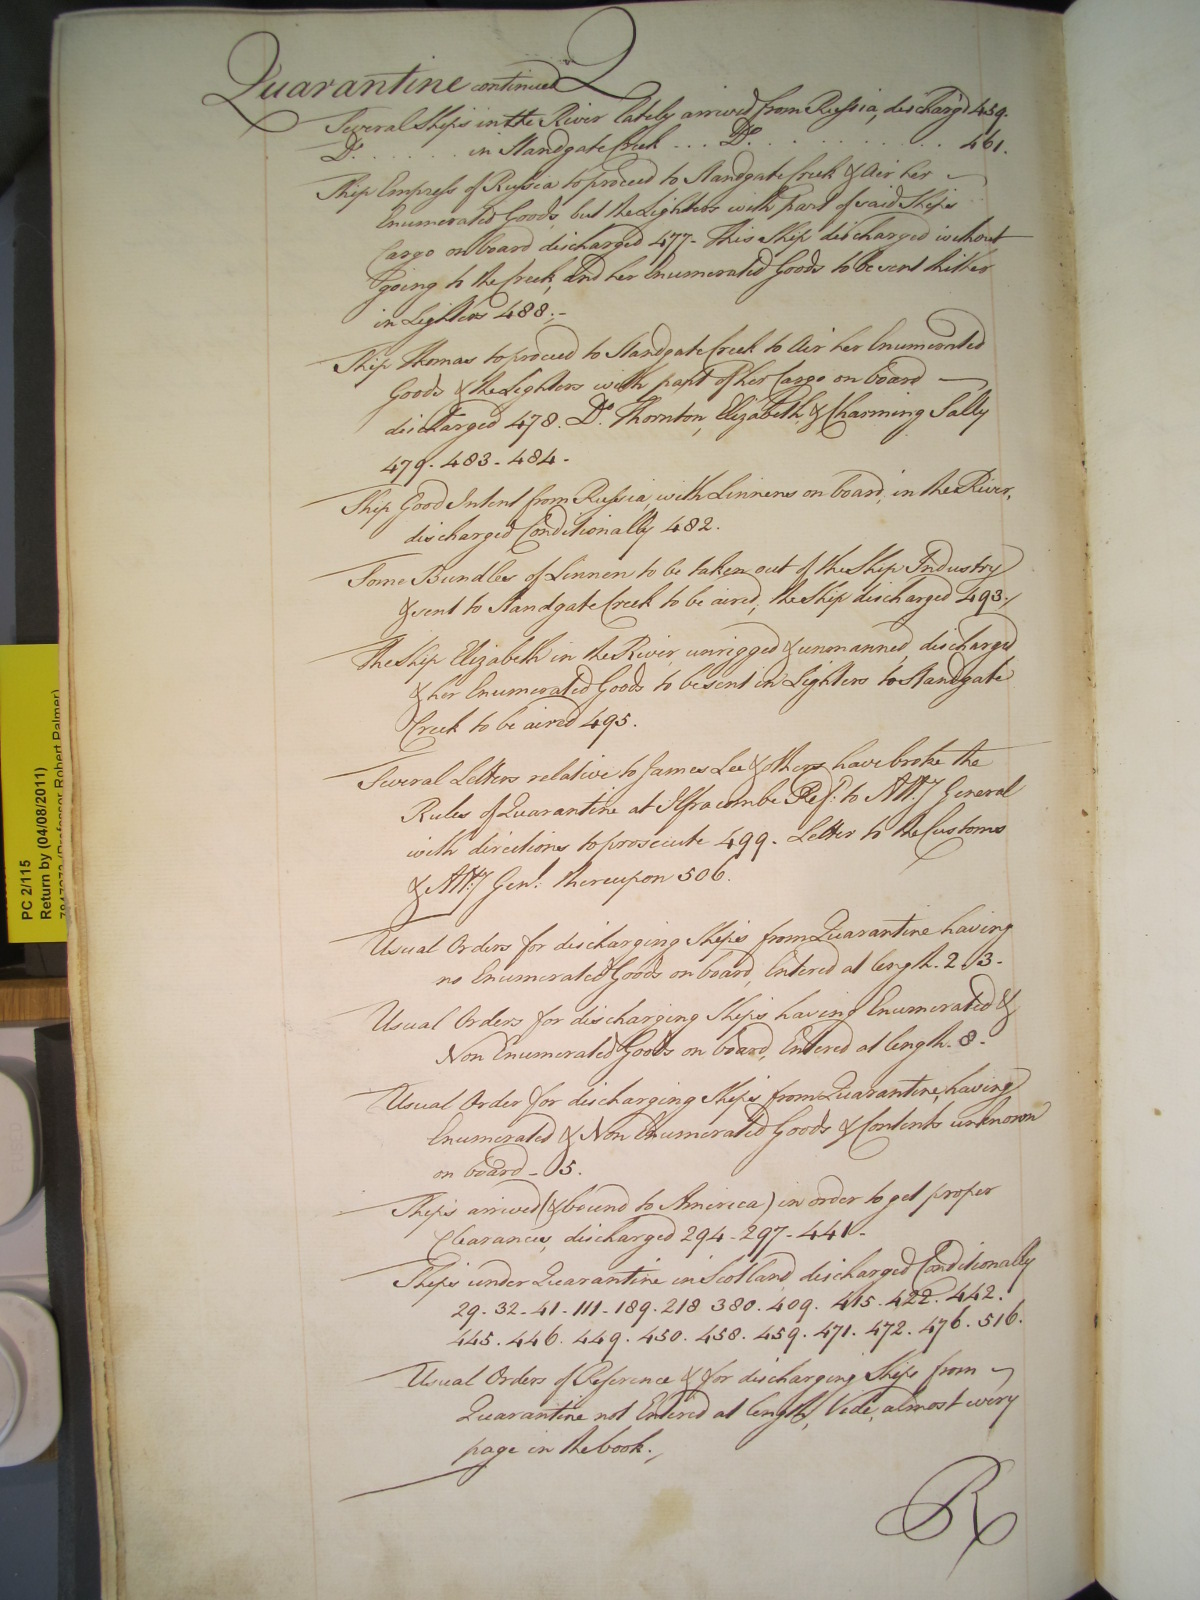 Q
Quarantine continued
Several Ships in the River lately arrived from Russia, discharg'd 459.
Do. . . . . . in Standgate Creek . . . Do. . . . . . . . . . . 461.
Ship Empress of Russia, to proceed to Standgate Creek & Air her
Enumerated Goods, but the Lighters with part of said Ships
Cargo on board discharged 477 - This Ship discharged without
going to the Creek, and her Enumerated Goods to be sent thither
in Lighters 488:-
Ship Thomas to proceed to Standgate Creek to Air her Enumerated
Goods & the Lighters with part of her Cargo on board
discharged 478. Do. Thornton, Elizabeth, & Charming Sally
479 - 483 - 484 -
Ship Good Intent from Russia, with Linnens on board, in the River,
discharged Conditionally 482.
Some Bundles of Linnen to be taken out of the Ship Industry
& sent to Standgate Creek to be aired, the Ship discharged 493./
The Ship Elizabeth in the River unrigged & unmanned, discharged
& her Enumerated Goods to be sent in Lighters to Standgate
Creek to be aired 495.
Several Letters relative to James Lee & others have broke the
Rules of Quarantine at Ilfracombe Ref.d to Att:y General
with directions to prosecute 499. Letter to the Customs
& Att:y Gen.l thereupon 506.
Usual Orders for discharging Ships from Quarantine having
no Enumerated Goods on board, Entered at length. 2. 3 -
Usual Orders for discharging Ships having Enumerated &
Non Enumerated Goods on board, Entered at length. 8 -
Usual Order for discharging Ships from Quarantine, having
Enumerated & Non Enumerated Goods & Contents unknown
on board - 5.
Ships arrived (& bound to America) in order to get proper
Clearances, discharged 294 - 297 - 441 -
Ships under Quarantine in Scotland, discharged Conditionally
29. 32 - 41 - 111 - 189. 218 380. 409. 415 - 422. 442.
445. 446. 449. 450. 458. 459. 471. 472. 476. 516.
Usual Orders of Reference & for discharging Ships from
Quarantine not Entered at length, Vide, almost every
page in the book./
R
PC 2/115
Return by (04/08/2011)
(Professor Robert Palmer)